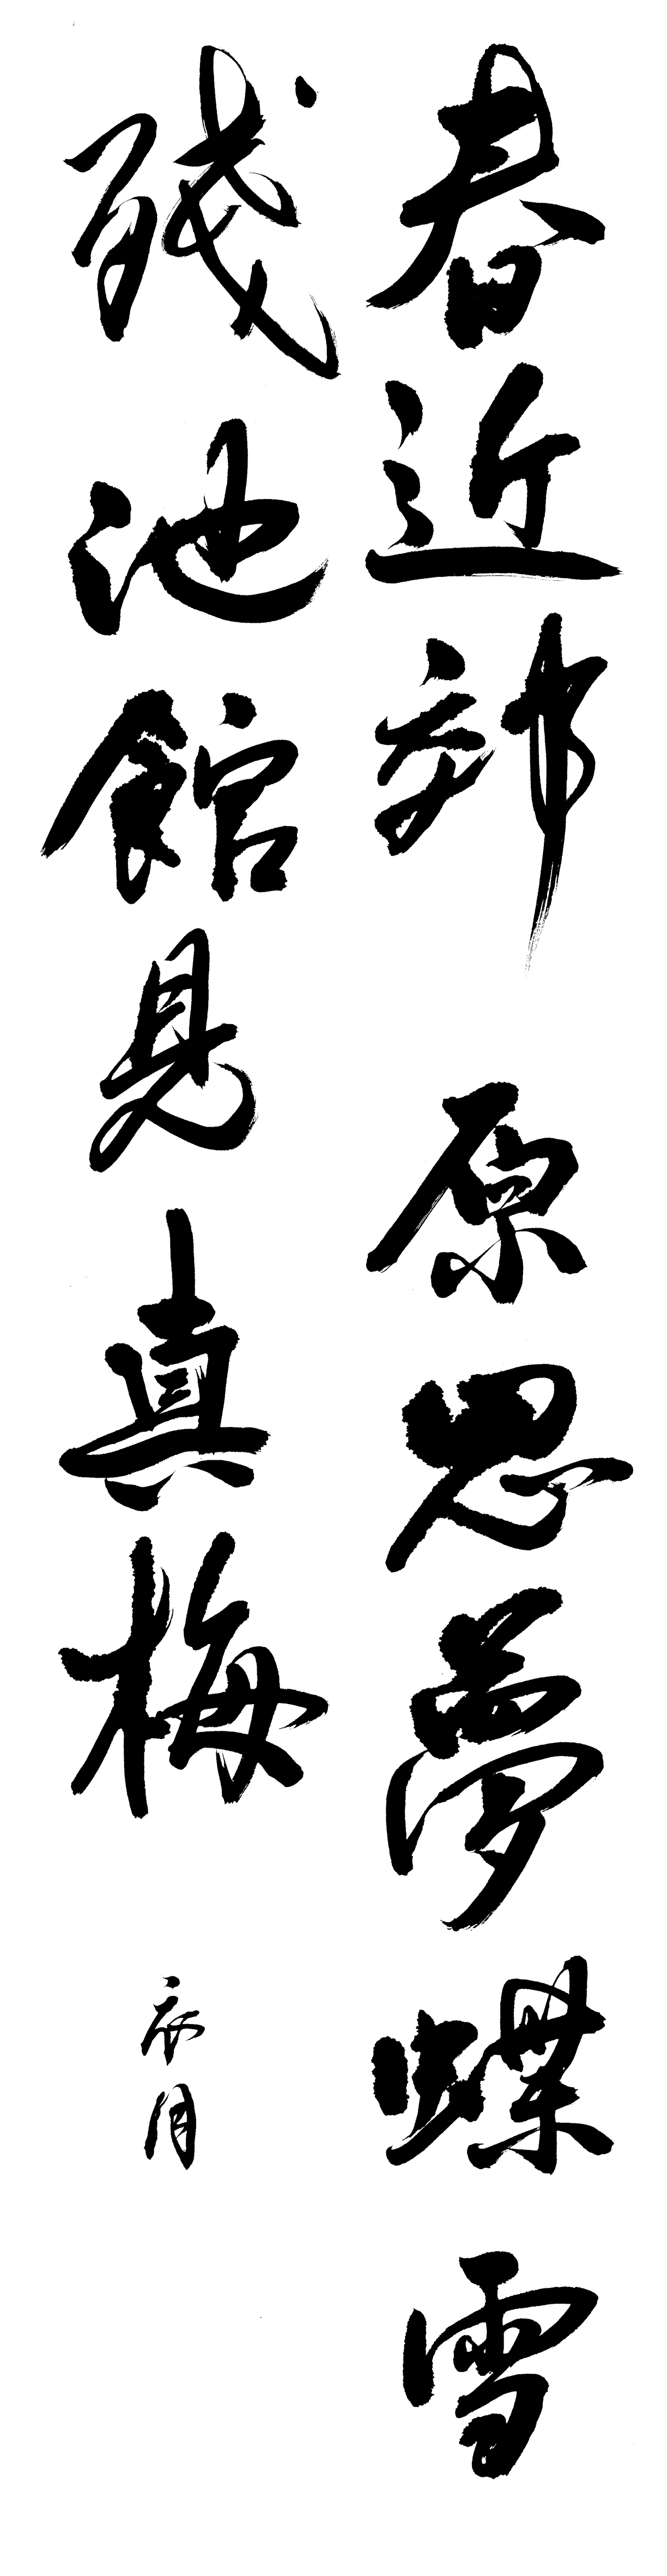 春近郊原思夢蝶雪
殘池館見真梅
辰月